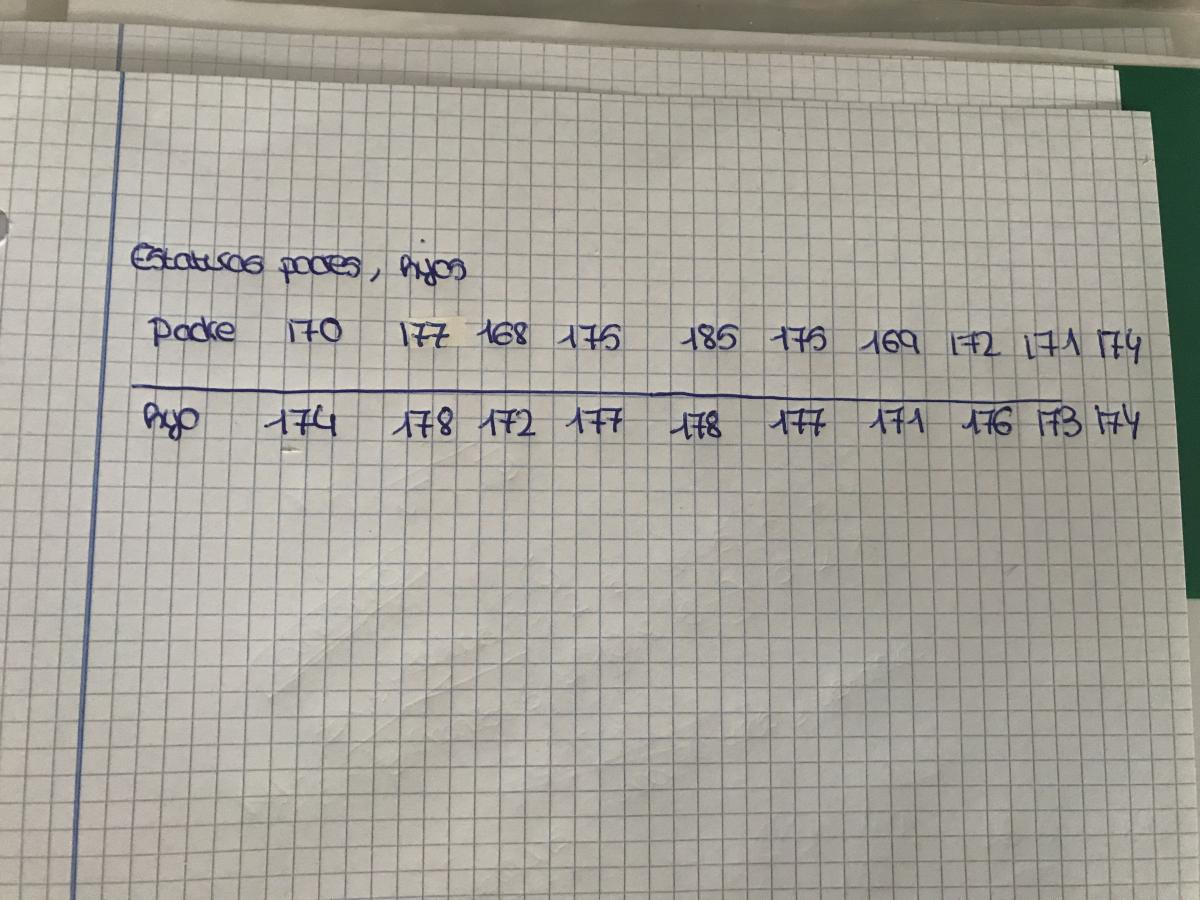 Estaturas padres, hijos
Padre 170 177 168 175 185 175 169 172 171 174
hijo 174 178 172 177 178 177 171 176 173 174